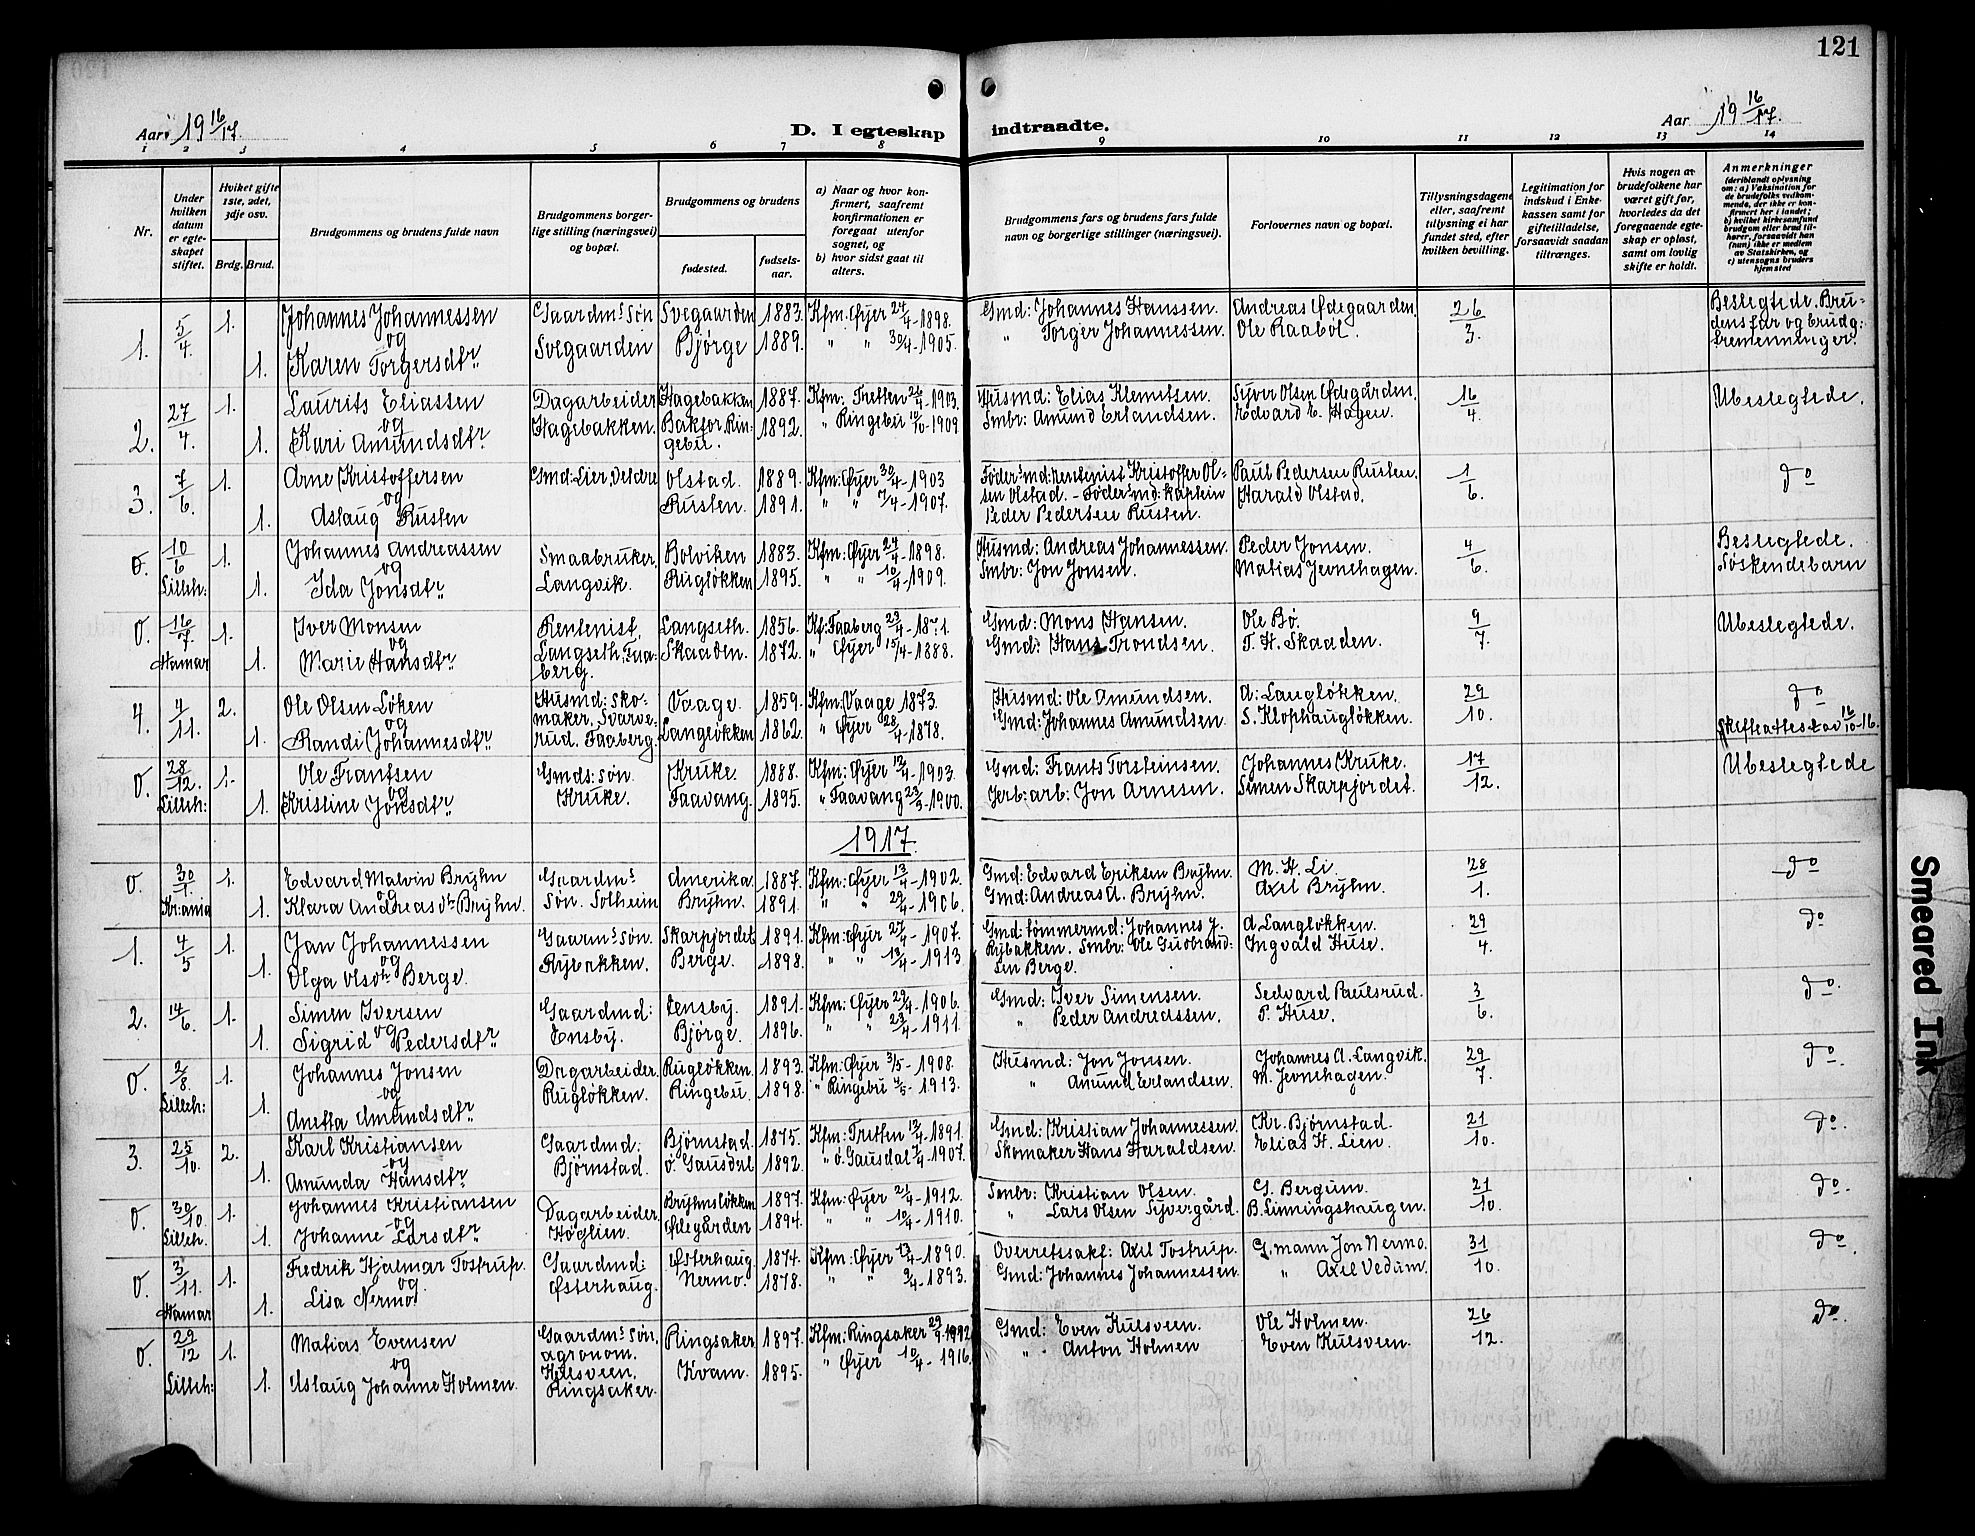 121
Aar 19 16/17.
D. I egteskap indtraadte.
Aar 19 16/17.
1 2 3 4 5 6 7 8 9 10 11 12 13 14
Nr.
Under hvilken datum er egteskapet stiftet.
Hviket gifte 1ste, 2det, 3dje osv.
Brdg. Brud.
Brudgommens og brudens fulde navn
Brudgommens borgerlige stilling (næringsvei) og bopæl.
Brudgommens og brudens
fødested. fødselsaar.
a) Naar og hvor konfirmert, saafremt konfirmationen er foregaat utenfor sognet, og
b) hvor sidst gaat til alters.
Brudgommens fars og brudens fars fulde navn og borgerlige stillinger (næringsvei).
Forlovernes navn og bopæl.
Tillysningsdagene eller, saafremt tillysning ei har fundet sted, efter hvilken bevilling.
Legitimation for indskud i Enkekassen samt for giftetilladelse, forsaavidt saadan tiltrænges.
Hvis nogen av brudefolkene har været gift før, hvorledes da det foregaaende egteskap er opløst, samt om lovlig skifte er holdt.
Anmerkninger
(deriblandt oplysning om: a) Vaksination for de brudefolks vedkommende, der ikke er konfirmert her i landet; b) hvilket kirkesamfund brudgom eller brud tilhører, forsaavidt han (hun) ikke er medlem av Statskirken, og c) utensogns bruders hjemsted
1. 5/4. 1. Johannes Johannessen Gaardm.s søn Svegaarden 1883. Kfm: Øyer 24/4-1898. Gmd: Johannes Hanssen. Andreas Ødegaarden. 26/3. Beslegtede. Bru-
og dens far og brudg:
1. Karen Torgersdtr. Svegaarden Bjørge 1889. " " 30/4-1905. " Torger Johannessen. Ole Raabøl. tremenninger.
2. 27/4. 1. Laurits Eliassen Dagarbeider Hagebakken 1887. Kfm: Tretten 26/4-1903. Husmd: Elias Klemetsen. Syver Olsen Ødegården. 16/4. Ubeslegtede.
og
1. Kari Amundsdtr. Hagebakken. Baktor, Ringebu. 1892. " Ringebu 10/10-1909 Smbr: Amund Erlandsen. Edvard E. Hagen.
3. 7/6. 1. Arne Kristoffersen Gmd: Lier, Veldre Olstad. 1889. Kfm: Øyer 30/4-1903 Føder.md: rentenist Kristoffer Ol- Paul Pedersen Rusten. 1/6. do
og sen Olstad. - Føder.md: kaptein
1. Aslaug Rusten Rusten. 1891. " " 7/4-1907. Peder Pedersen Rusten. Harald Olstad.
0. 10/6 Lilleh: 1. Johannes Andreassen Smaabruker, Bolviken 1883. Kfm: Øyer 24/4-1898. Husmd: Andreas Johannessen. Peder Jonsen. 4/6. Beslegtede.
og
1. Ida Jonsdtr. Langvik. Rugløkken 1895. " " 10/4-1909. Smbr: Jon Jonsen. Matias Jevnehagen. Søskendebarn
0. 16/7 Hamar 1. Iver Monsen Rentenist, Langseth. 1856. Kf: Faaberg 23/4-1871. Gmd: Mons Hansen. Ole Bø. 9/7. Ubeslegtede.
og
1. Marie Hansdtr. Langseth, Faaberg. Skaaden. 1872. " Øyer 15/4-1888. Gmd: Hans Trondsen. T. H. Skaaden.
4. 4/11. 2. Ole Olsen Løken Husmd: sko- Vaage. 1859. Kfm: Vaage 1873. Husmd: Ole Amundsen. A: Langløkken. 29/10. do
og maker, Svarve-
1. Randi Johannesdtr. rud. Faaberg. Langløkken 1862. " Øyer 28/4-1878. Gmd: Johannes Amundsen S. Klophaugløkken. Skifteattest av 16/10-16.
0. 28/12. Lilleh: 1. Ole Frantsen Gmds: søn. Kruke. 1888. Kfm: Øyer 12/4-1903. Gmd: Frants Torsteinsen. Johannes Kruke. 17/12. Ubeslegtede
og
1. Kristine Jonsdtr. Kruke. Faavang. 1895. " Faavang 23/5-1900. Jerb: arb: Jon Arnesen. Simen Skarpjordet.
1917.
0. 30/1. Kr:ania 1. Edvard Malvin Bryhn Gaardm.s Amerika. 1887. Kfm: Øyer 13/4-1902. Gmd: Edvard Eriksen Bryhn. M. H. Li 28/1. do
og
1. Klara Andreasdtr. Bryhn. søn. Solheim Bryhn. 1891. " " 29/4-1906. Gmd: Andreas A. Bryhn. Axel Bryhn.
1. 4/5 1. Jan Johannessen Gaarm.s søn. Skarpjordet 1891. Kfm: Øyer 27/4-1907. Gmd: tømmermd: Johannes J. A. Langløkken. 29/4. do
og Rybakken. Smbr: Ole Gudbrand-
1. Olga Olsdtr. Berge. Rybakken. Berge. 1898. " " 13/4-1913. sen Berge. Ingvald Huse.
2. 14/6. 1. Simen Iversen Gaardmd: Ensby. 1891. Kfm: Øyer 29/4-1906. Gmd: Iver Simensen. Sedvard Paulsrud. 3/6. do.
og
1. Sigrid Pedersdtr. Ensby. Bjørge. 1896. " " 23/4-1911. " Peder Andreassen. P. Huse.
0. 2/8. Lilleh: 1. Johannes Jonsen Dagarbeider. Rugløkken. 1893. Kfm: Øyer 3/5-1908. Husmd: Jon Jonsen. Johannes A. Langvik. 29/7. do.
og
1. Anetta Amundsdtr. Rugløkken. Ringebu. 1898. " Ringebu 4/5-1913. " Amund Erlandsen. M. Jevnehagen.
3. 25/10. 2. Karl Kristiansen Gaardmd: Bjørnstad. 1875. Kfm: Tretten 12/4-1891. Gmd: Kristian Johannessen. Kr. Bjørnstad. 21/10. do.
og
1. Amunda Hansdtr. Bjørnstad. ø. Gausdal 1892. " ø. Gausdal 7/4-1907. Skomaker Hans Haraldsen. Elias H. Lien.
0. 30/10. Lilleh. 1. Johannes Kristiansen Dagarbeider Bryhnsløkken 1897. Kfm: Øyer 21/4-1912. Smbr: Kristian Olsen. G. Bergum. 21/10. do.
og
1. Johanne Larsdtr. Høglien. Ødegården 1894. " " 10/4-1910. " Lars Olsen Syvergård. B. Linningshaugen.
0. 3/11. Hamar 1. Fredrik Hjalmar Tostrup. Gaardmd: Østerhaug. 1874. Kfm: Øyer 13/4-1890. Overretssakf: Axel Tostrup. G. mann Jon Nermo. 31/10. do.
og
1. Lisa Nermo Østerhaug. Nermo. 1878. " " 9/4-1893. Gmd: Johannes Johannessen " Axel Vedum.
0. 29/12 Lilleh: 1. Matias Evensen Gaardm.s søn, Ringsaker 1897. Kfm: Ringsaker 29/9-1912 Gmd: Even Kulsveen. Ole Holmen. 26/12. do.
og agronom.
1. Aslaug Johanne Holmen. Kulsveen. Ringsaker. Kvam. 1895. " Øyer 10/4-1916. " Anton Holmen Even Kulsveen.
Smeared Ink